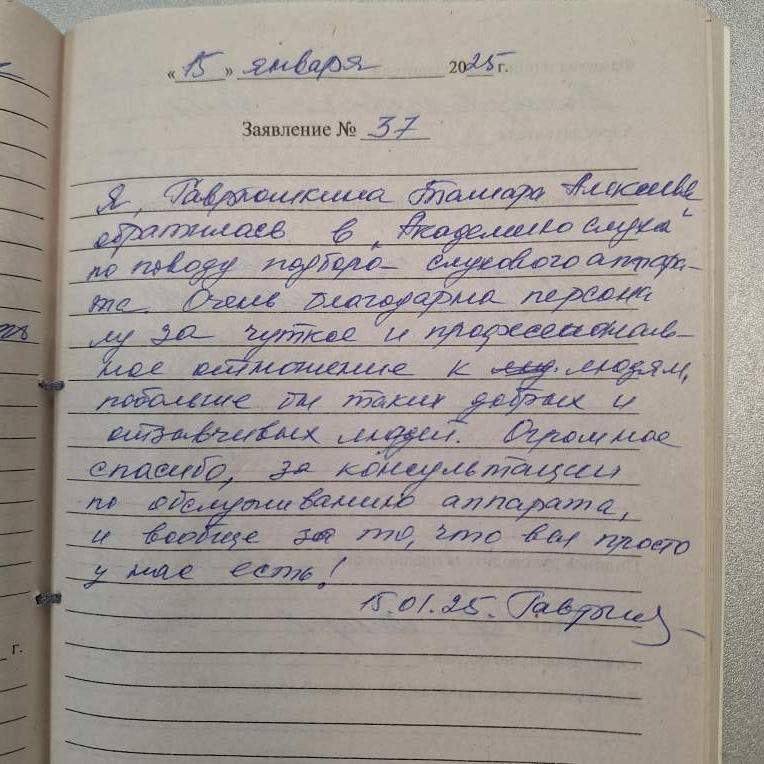 « 15 » января 2025 г.
Заявление № 37
Я, Гаврюшкина Тамара Алексеевна
обратилась в „Академию слуха“
по поводу подбора слухового аппара-
та. Очень благодарна персона
лу за чуткое и профессиональ-
ное отношение к людям,
побольше бы таких добрых и
отзывчивых людей. Огромное
спасибо, за консультации
по обслуживанию аппарата,
и вообще за то, что вы просто
у нас есть!
15.01.25.
г.